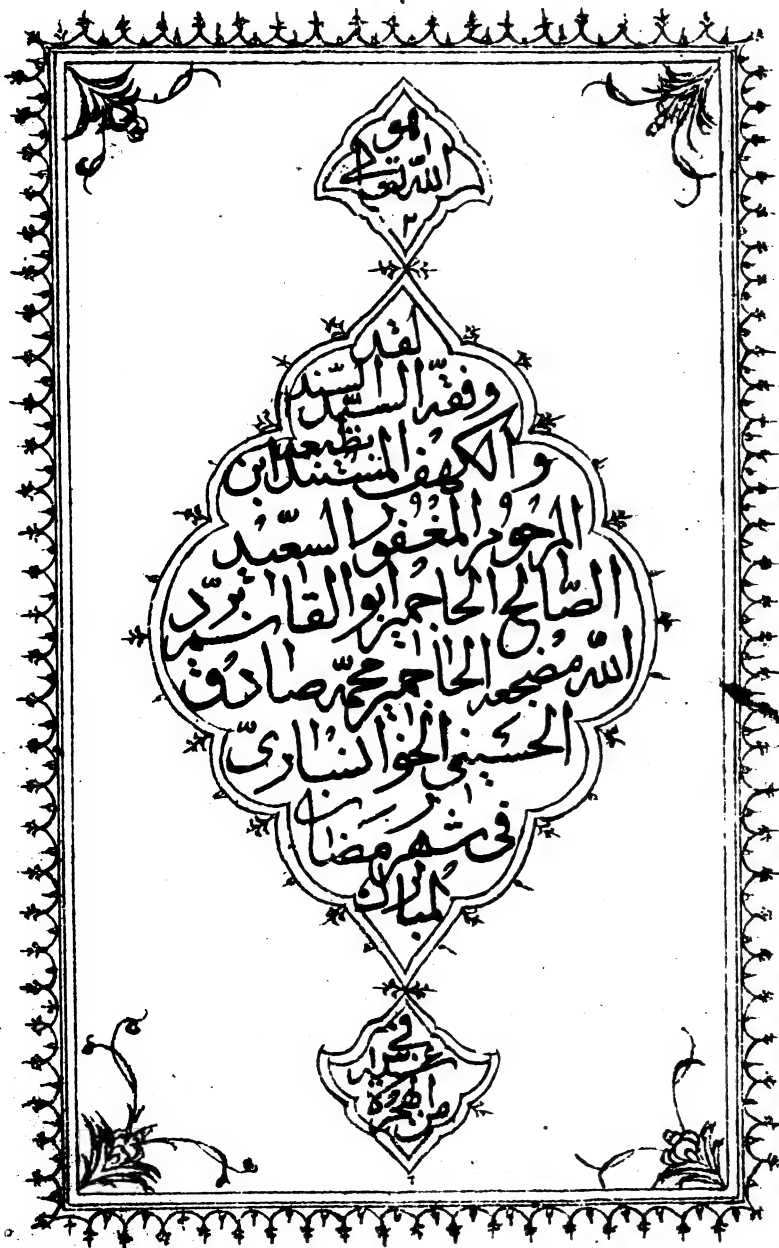 هو
الله تعالى
لقد
وفقه السيد السند
والكهف المستند بطبعه ابن
المرحوم المغفور السعيد
الصالح الحاجمير ابو القاسم برّد
الله مضجعه الحاجمير محمد صادق
الحسيني الخوانساري
في شهر رمضان
المبارك
في
من الهجرة